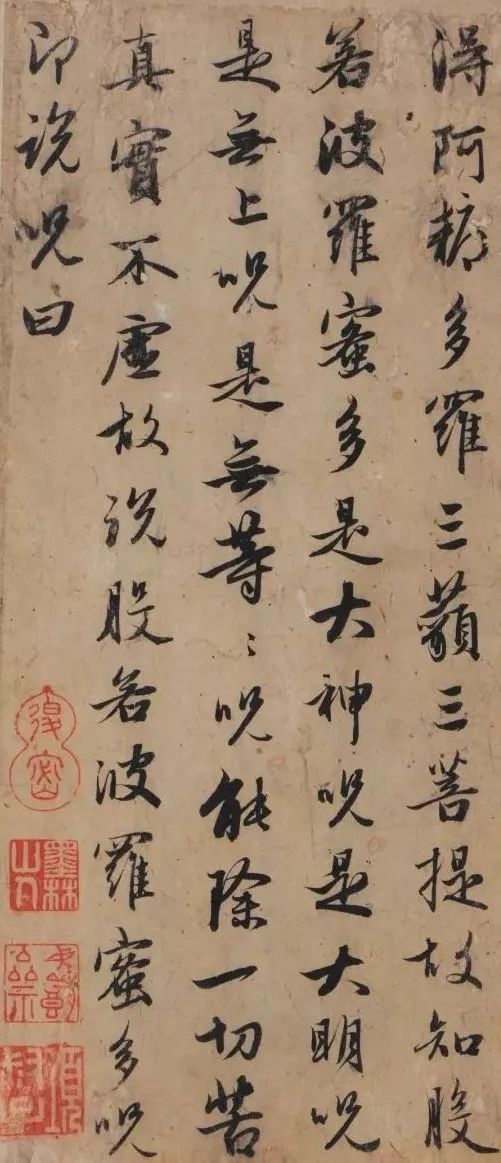 得阿耨多羅三藐三菩提故知般
若波羅蜜多是大神呪是大明呪
是無上呪是無等〻呪能除一切苦
真實不虛故說般若波羅蜜多呪
即說呪曰
退密
墨林山人